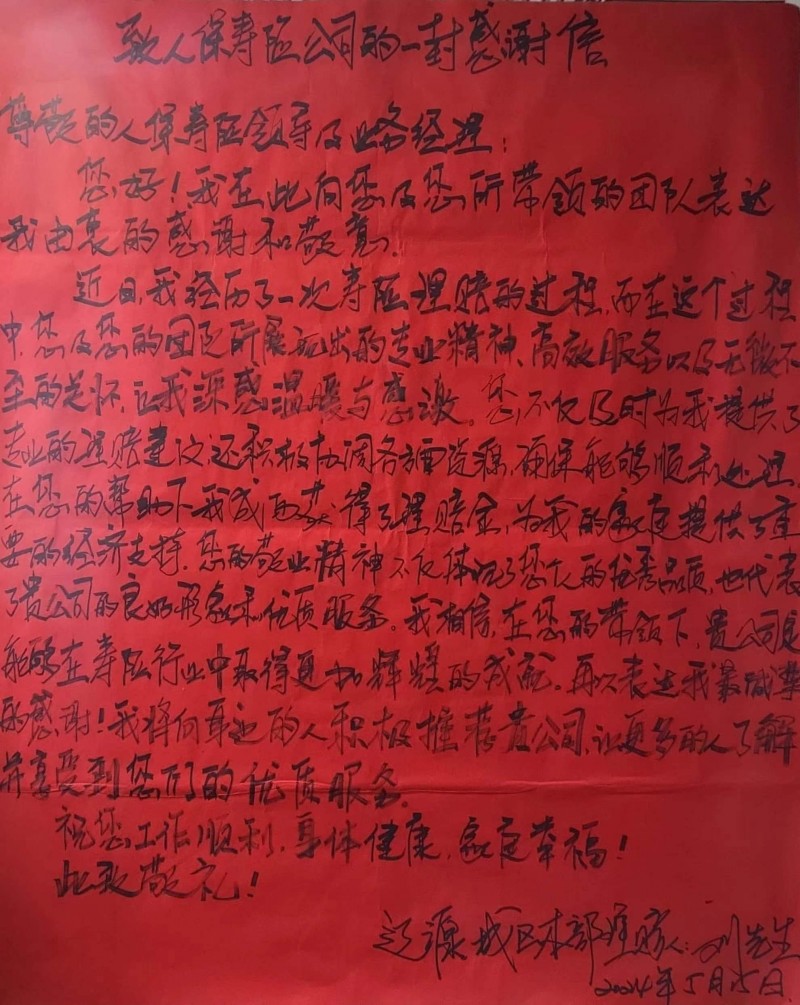 致人保寿险公司的一封感谢信
尊敬的人保寿险领导及业务经理:
您好!我在此向您及您所带领的团队表达
我由衷的感谢和敬意.
近日,我经历了一次寿险理赔的过程,而在这个过程
中,您及您的团队所展示出的专业精神、高效服务以及无微不
至的关怀,让我深感温暖与感激。您不仅及时为我提供了
专业的理赔建议,还积极协调各方面资源,确保能够顺利处理,
在您的帮助下,我成功获得了理赔金,为我的家庭提供了重
要的经济支持.您的敬业精神不仅体现了您个人的优秀品质,也代表
了贵公司的良好形象和优质服务。我相信,在您的带领下,贵公司定
能够在寿险行业中取得更加辉煌的成就。再次表达我最诚挚
的感谢!我将向身边的人积极推荐贵公司,让更多的人了解
并享受到您们的优质服务.
祝您工作顺利,身体健康,家庭幸福!
此致敬礼!
辽源城区本部理赔人:刘先生
2024年5月15日